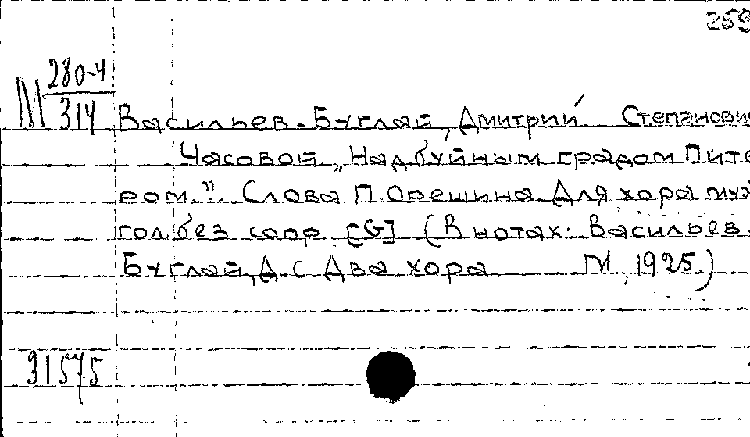 259
М 280-4
314
Васильев-Буглай, Дмитрий Степанови
Часовой „Над буйным градом Пите
ром." Слова П. Орешина Для хора муж
гол. без сопр. [G] (В нотах: Васильев-
Буглай, Д. С. Два хора М, 1925.)
31575